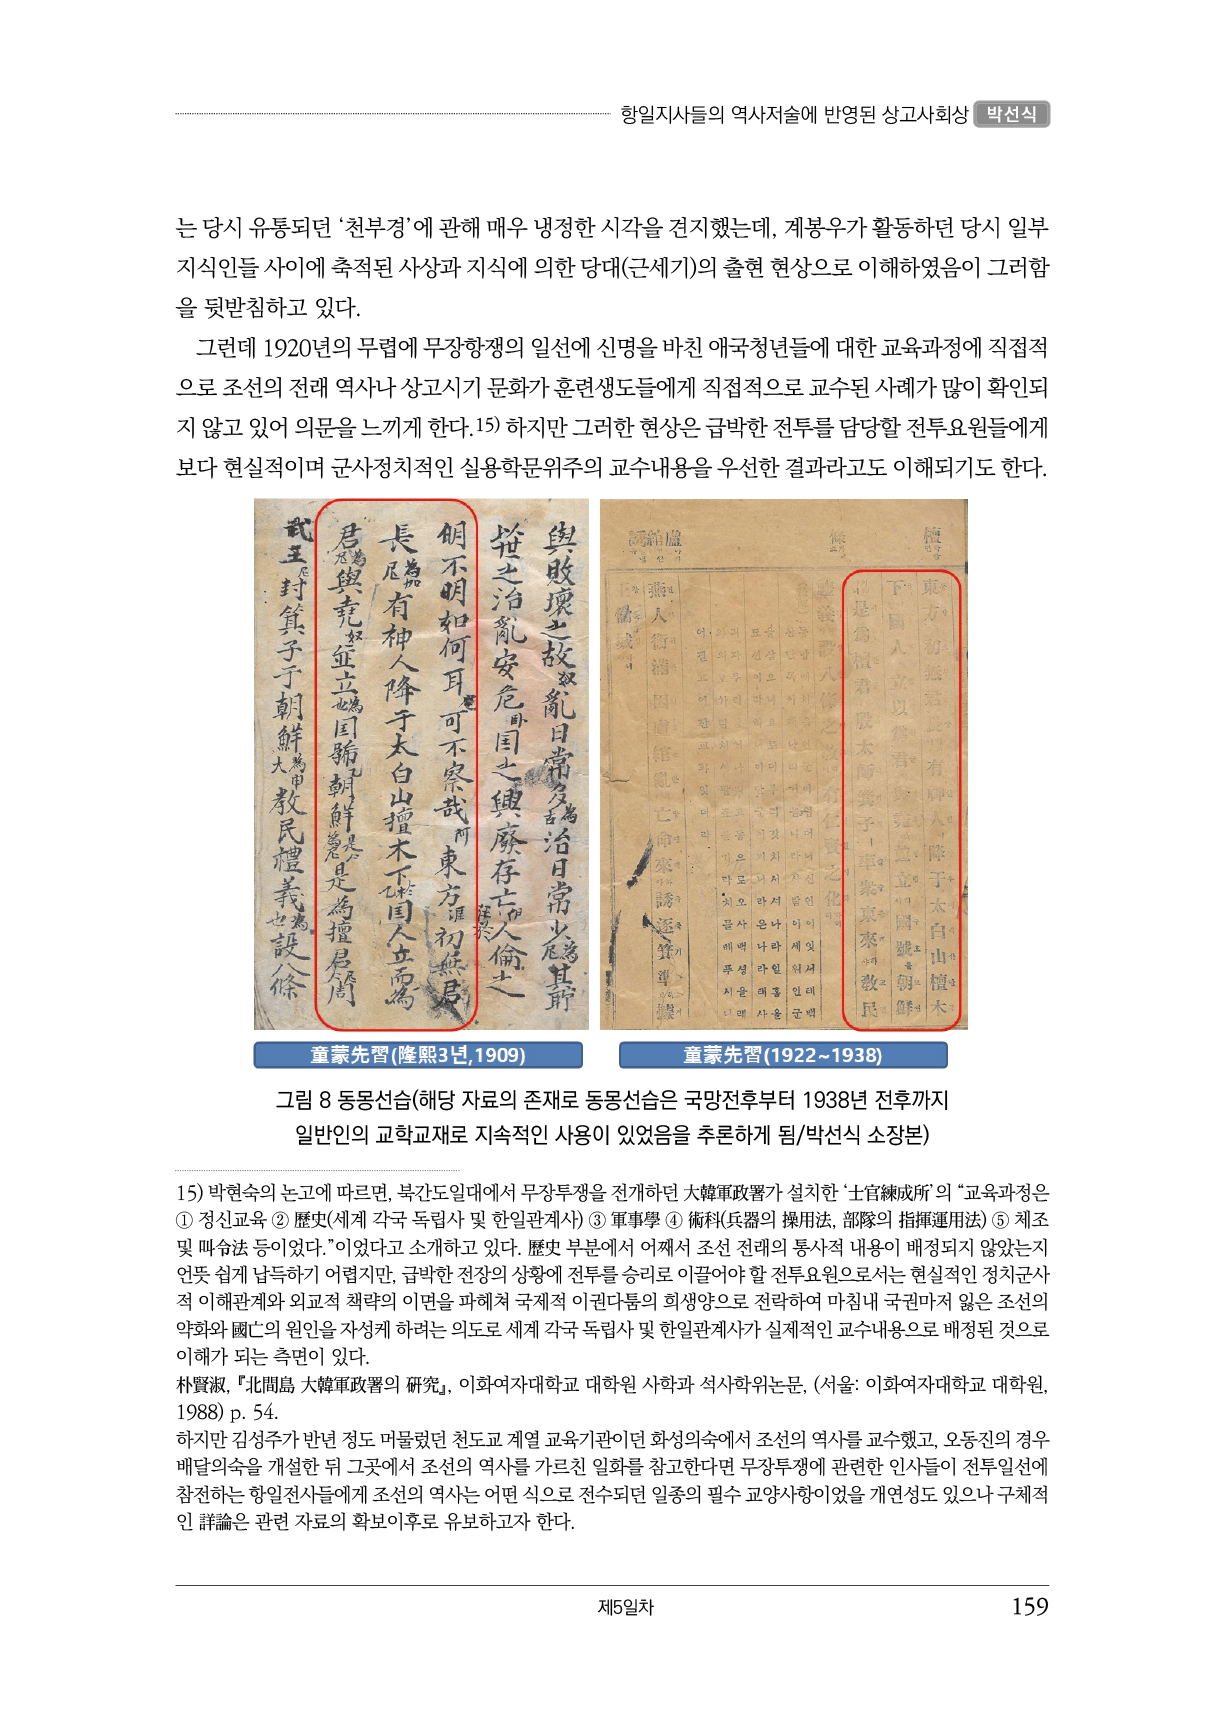 항일지사들의 역사저술에 반영된 상고사회상 박선식
는 당시 유통되던 ‘천부경’에 관해 매우 냉정한 시각을 견지했는데, 계봉우가 활동하던 당시 일부
지식인들 사이에 축적된 사상과 지식에 의한 당대(근세기)의 출현 현상으로 이해하였음이 그러함
을 뒷받침하고 있다.
그런데 1920년의 무렵에 무장항쟁의 일선에 신명을 바친 애국청년들에 대한 교육과정에 직접적
으로 조선의 전래 역사나 상고시기 문화가 훈련생도들에게 직접적으로 교수된 사례가 많이 확인되
지 않고 있어 의문을 느끼게 한다.15) 하지만 그러한 현상은 급박한 전투를 담당할 전투요원들에게
보다 현실적이며 군사정치적인 실용학문위주의 교수내용을 우선한 결과라고도 이해되기도 한다.
與敗壞之故 亂日常多 治日常少 其前
世之治亂安危 国之興廢存亡 人倫之
明不明如何耳 可不察哉 東方 初無君
長 有神人降于太白山檀木下 国人立而為
君 與堯 並立 国號朝鮮 是為檀君 周
武王封箕子于朝鮮 教民禮義 設八條
東方 初無君長 有神人 降于太白山檀木
下 國人 立以為君 與堯 並立 國號 朝鮮
是為檀君 殷太師箕子 率衆東來 教民
禮義 設八條之教 有仁賢之化
燕人衛滿 因盧綰亂 亡命來 誘逐箕準 據
王儉城
童蒙先習(隆熙3년,1909)
童蒙先習(1922~1938)
그림 8 동몽선습(해당 자료의 존재로 동몽선습은 국망전후부터 1938년 전후까지
일반인의 교학교재로 지속적인 사용이 있었음을 추론하게 됨/박선식 소장본)
15) 박현숙의 논고에 따르면, 북간도일대에서 무장투쟁을 전개하던 大韓軍政署가 설치한 ‘士官練成所’의 “교육과정은
① 정신교육 ② 歷史(세계 각국 독립사 및 한일관계사) ③ 軍事學 ④ 術科(兵器의 操用法, 部隊의 指揮運用法) ⑤ 체조
및 따令法 등이었다.”이었다고 소개하고 있다. 歷史 부분에서 어째서 조선 전래의 통사적 내용이 배정되지 않았는지
언뜻 쉽게 납득하기 어렵지만, 급박한 전장의 상황에 전투를 승리로 이끌어야 할 전투요원으로서는 현실적인 정치군사
적 이해관계와 외교적 책략의 이면을 파헤쳐 국제적 이권다툼의 희생양으로 전락하여 마침내 국권마저 잃은 조선의
약화와 國亡의 원인을 자성케 하려는 의도로 세계 각국 독립사 및 한일관계사가 실제적인 교수내용으로 배정된 것으로
이해가 되는 측면이 있다.
朴賢淑, 『北間島 大韓軍政署의 硏究』, 이화여자대학교 대학원 사학과 석사학위논문, (서울: 이화여자대학교 대학원,
1988) p. 54.
하지만 김성주가 반년 정도 머물렀던 천도교 계열 교육기관이던 화성의숙에서 조선의 역사를 교수했고, 오동진의 경우
배달의숙을 개설한 뒤 그곳에서 조선의 역사를 가르친 일화를 참고한다면 무장투쟁에 관련한 인사들이 전투일선에
참전하는 항일전사들에게 조선의 역사는 어떤 식으로 전수되던 일종의 필수 교양사항이었을 개연성도 있으나 구체적
인 詳論은 관련 자료의 확보이후로 유보하고자 한다.
제5일차
159